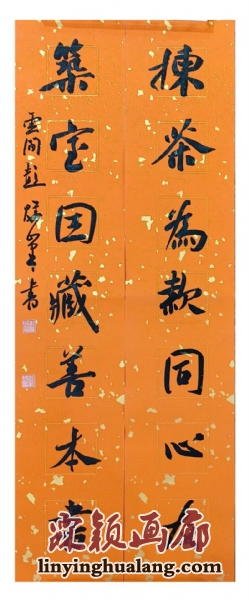 揀茶為款同心友
築室因藏善本書
雲間彭 書
霖颖画廊
linyinghualang.com